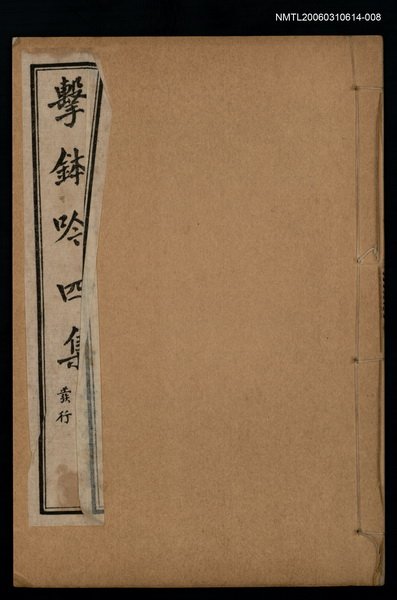 NMTL20060310614-008
擊鉢吟四集
發行